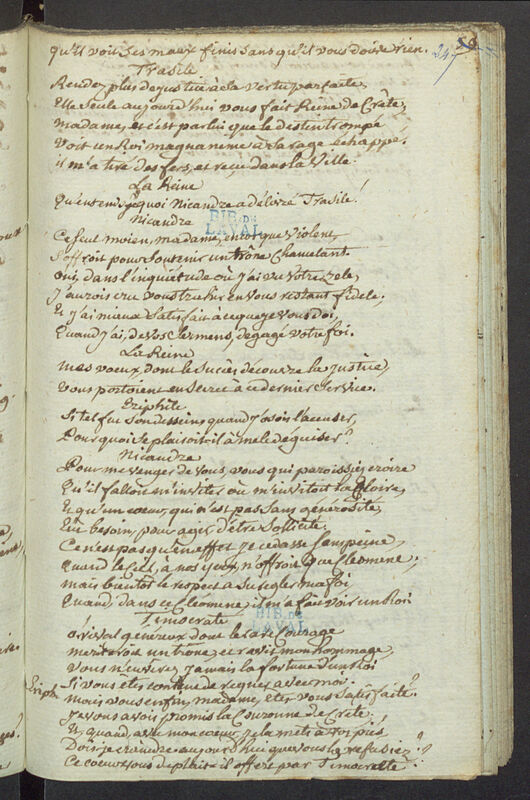 247
qu'il voit ses maux finis sans qu'il vous doive rien.
Trasile
Rendez plus de justice à la vertu parfaite,
Elle seule aujourd'hui vous fait Reine de Crête,
Madame, et c'est par lui que le destin trompé
Voit un Roi magnanime à sa rage échappé.
il m'a tiré des fers, et reçu dans la Ville
La Reine
Qu'entens-je quoi Nicandre a délivré Trasile!
Nicandre
Ce seul moien, madame, encor que violent,
S'offroit pour soutenir un trône chancelant
oui, dans l'inquiétude où j'ai vu votre zele,
J'aurois cru vous trahir en vous restant fidele,
Et j'ai mieux satisfait à ce que je vous doi,
Quand j'ai, de vos sermens, dégagé votre foi.
La Reine
mes voeux dont le succès découvre la justice,
vous portoient en secret à ce dernier service.
Eriphile
Si tel fut son dessein, quand j'osois l'accuser,
Pourquoi se plaisoit-il à me le déguiser?
Nicandre
Pour me venger de vous, vous qui paroissiez croire
Qu'il fallou m'inviter où m'invitoit la Gloire,
Et qu'un coeur, qui n'est pas sans générosité,
Eût besoin, pour agir, d'être sollicité.
Ce n'est pas qu'en effet je cedasse sans peine,
Quand le Ciel, à nos yeux, n'offroit que Cleomene;
mais bientôt le respect a su regler ma foi
Quand, dans ce Cleomene, il m'a fait voir un Roi
Timocrate
o rival genereux dont le rare courage
meriteroit un trône, et ravit mon hommage,
vous n'envierez jamais la fortune d'un Roi
Si vous êtes content de regner avec moi.
Eriph.
mais vous enfin, madame, etes vous satisfaite?
Je vous avois promis la Couronne de Crête;
Et quand, avec mon coeur, je la mets à vos piés
Dois-je craindre aujourd'hui que vous la refusiez?
Ce coeur vous déplait-il offert par Timocrate?
BIB. DE
LAVAL
BIB. DE
LAVAL